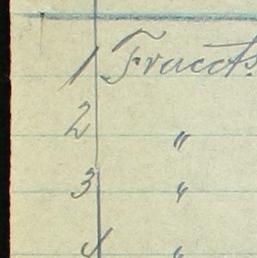 1 Fracts.
2 "
3 "
4 "